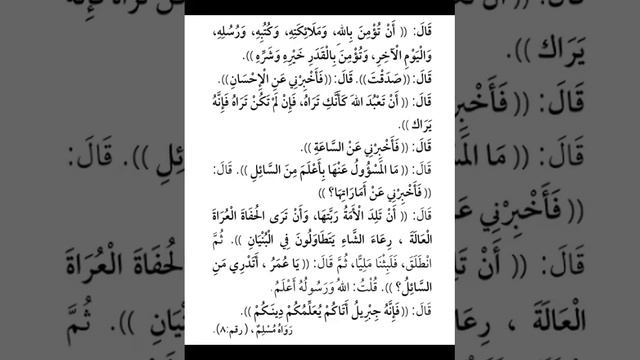 قَالَ: (( أَنْ تُؤْمِنَ بِاللهِ، وَمَلَائِكَتِهِ، وَكُتُبِهِ، وَرُسُلِهِ،
وَالْيَوْمِ الْآخِرِ، وَتُؤْمِنَ بِالْقَدَرِ خَيْرِهِ وَشَرِّهِ )).
قَالَ: (( صَدَقْتَ)). قَالَ: (( فَأَخْبِرْنِي عَنِ الْإِحْسَانِ)).
قَالَ: (( أَنْ تَعْبُدَ اللهَ كَأَنَّكَ تَرَاهُ، فَإِنْ لَمْ تَكُنْ تَرَاهُ فَإِنَّهُ
يَرَاك )).
قَالَ: (( فَأَخْبِرْنِي عَنْ السَّاعَةِ )).
قَالَ: (( مَا المَسْؤُولُ عَنْهَا بِأَعْلَمَ مِنَ السَّائِلِ )). قَالَ:
(( فَأَخْبِرْنِي عَنْ أَمَارَاتِهَا؟ ))
قَالَ: (( أَنْ تَلِدَ الْأَمَةُ رَبَّتَهَا، وَأَنْ تَرَى الحُفَاةَ الْعُرَاةَ
الْعَالَةَ ، رِعَاءَ الشَّاءِ يَتَطَاوَلُونَ فِي الْبُنْيَانِ )). ثُمَّ
انْطَلَقَ، فَلَبِثْنَا مَلِيًّا، ثُمَّ قَالَ: (( يَا عُمَرُ ، أَتَدْرِي مَنِ
السَّائِلُ؟ )). قُلْتُ: اللهُ وَرَسُولُهُ أَعْلَمُ.
قَالَ: (( فَإِنَّهُ جِبْرِيلُ أَتَاكُمْ يُعَلِّمُكُمْ دِينَكُمْ )).
رَوَاهُ مُسْلِمٌ ، ( رقم:٨).